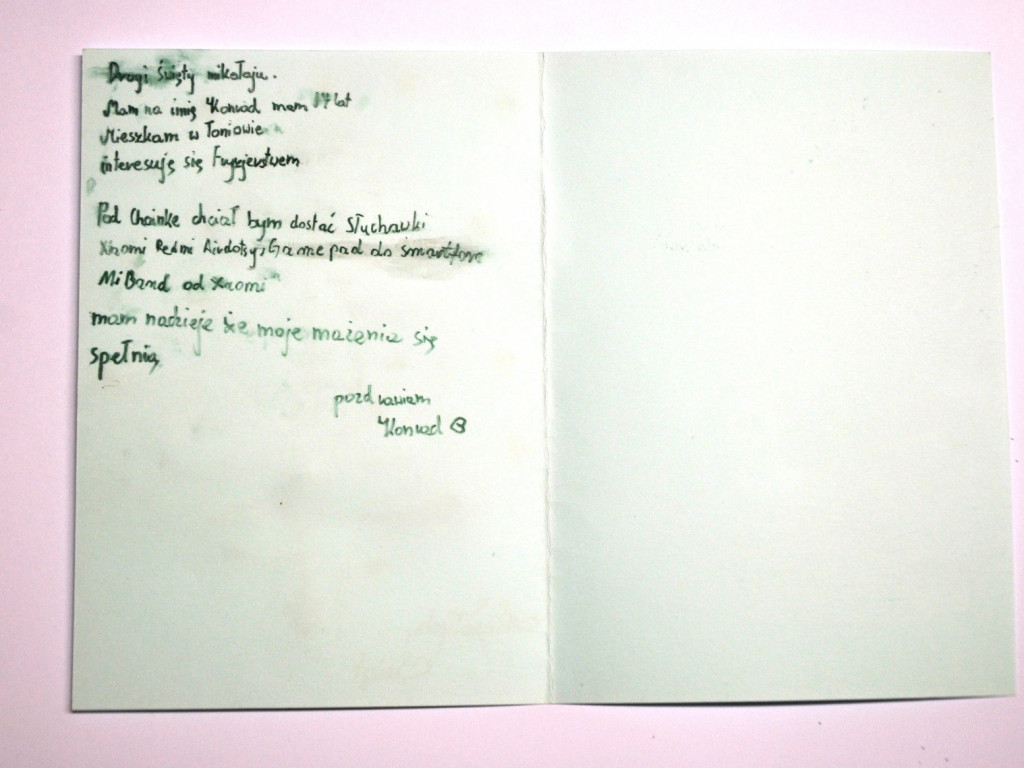 Drogi Święty mikołaju.
Mam na imię Konrad mam 14 lat
Mieszkam w Toniowie
interesuję się Fryzjerstwem
Pod Choinke chciał bym dostać Słuchawki
Xiaomi Redmi Airdotsy i Gamepad do smartfona
Mi Band od Xiaomi
mam nadzieje że moje mażenia się
spełnią
pozdrawiam
Konrad B